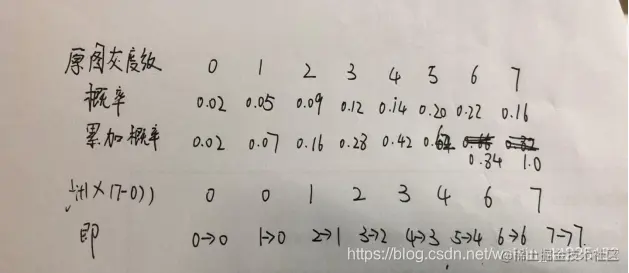 原图灰度级 0 1 2 3 4 5 6 7
概率 0.02 0.05 0.09 0.12 0.14 0.20 0.22 0.16
累加概率 0.02 0.07 0.16 0.28 0.42
0.84 1.0
×(7-0)) 0 0 1 2 3 4 6 7
即 0→0 1→0 2→1 3→2 4→3 5→4 6→6 7→7
@稀土掘金技术社区